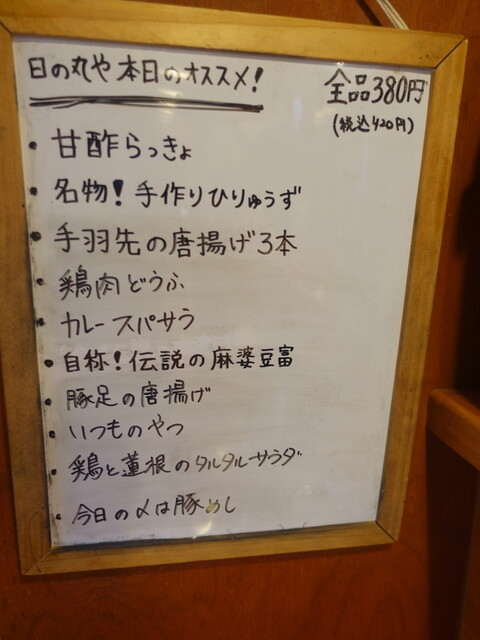 日の丸や 本日のオススメ!
全品380円
(税込420円)
・甘酢らっきょ
・名物!手作りひりゅうず
・手羽先の唐揚げ3本
・鶏肉どうふ
・カレースパサラ
・自称!伝説の麻婆豆富
・豚足の唐揚げ
・いつものやつ
・鶏と蓮根のタルタルサラダ
・今日の〆は豚めし